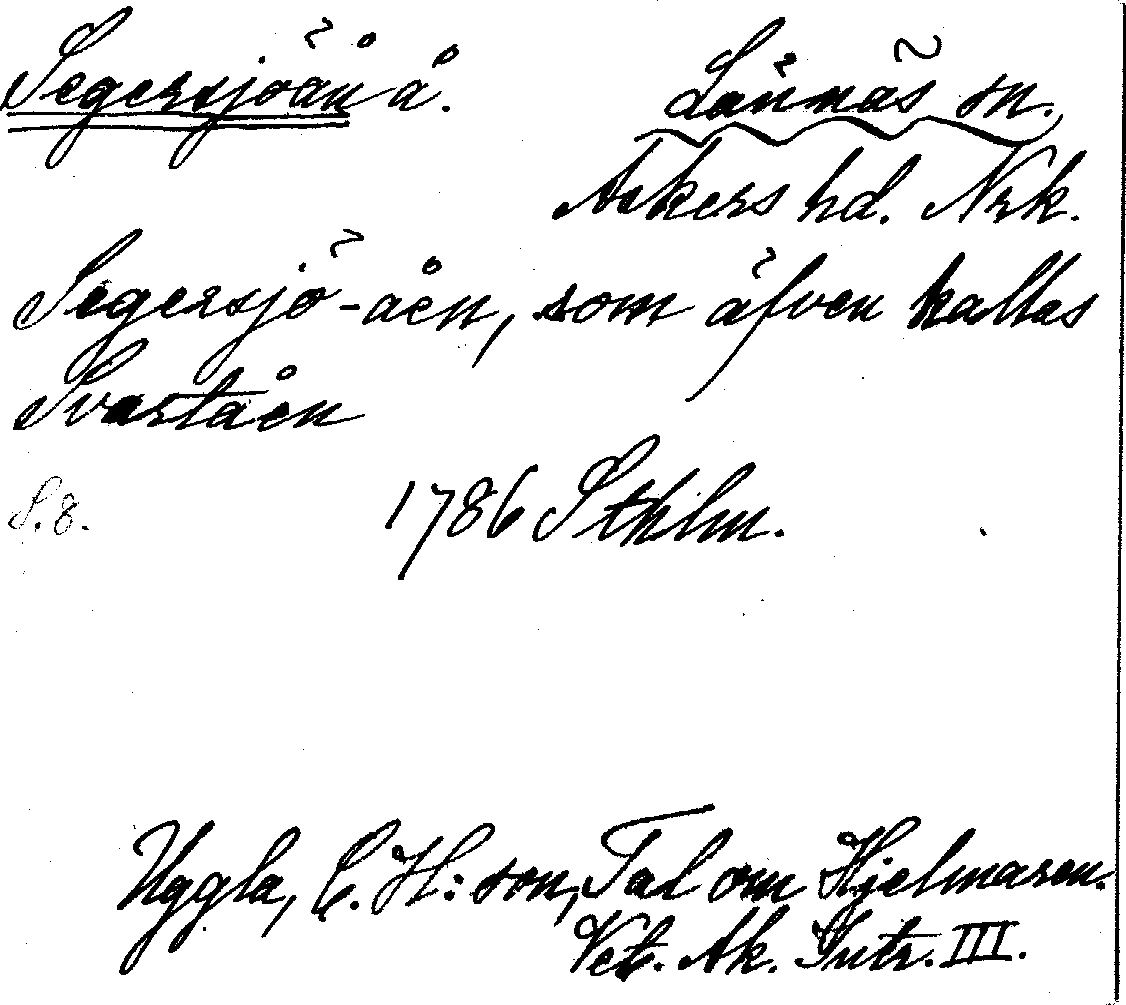 Segersjöån å. Lännäs sn.
Askers hd. Nrk.
Segersjö-åen, som äfven kallas
Svartåen
S. 8. 1786 Sthlm.
Uggla, C. H:son, Tal om Hjelmaren.
Vet. Ak. Intr. III.